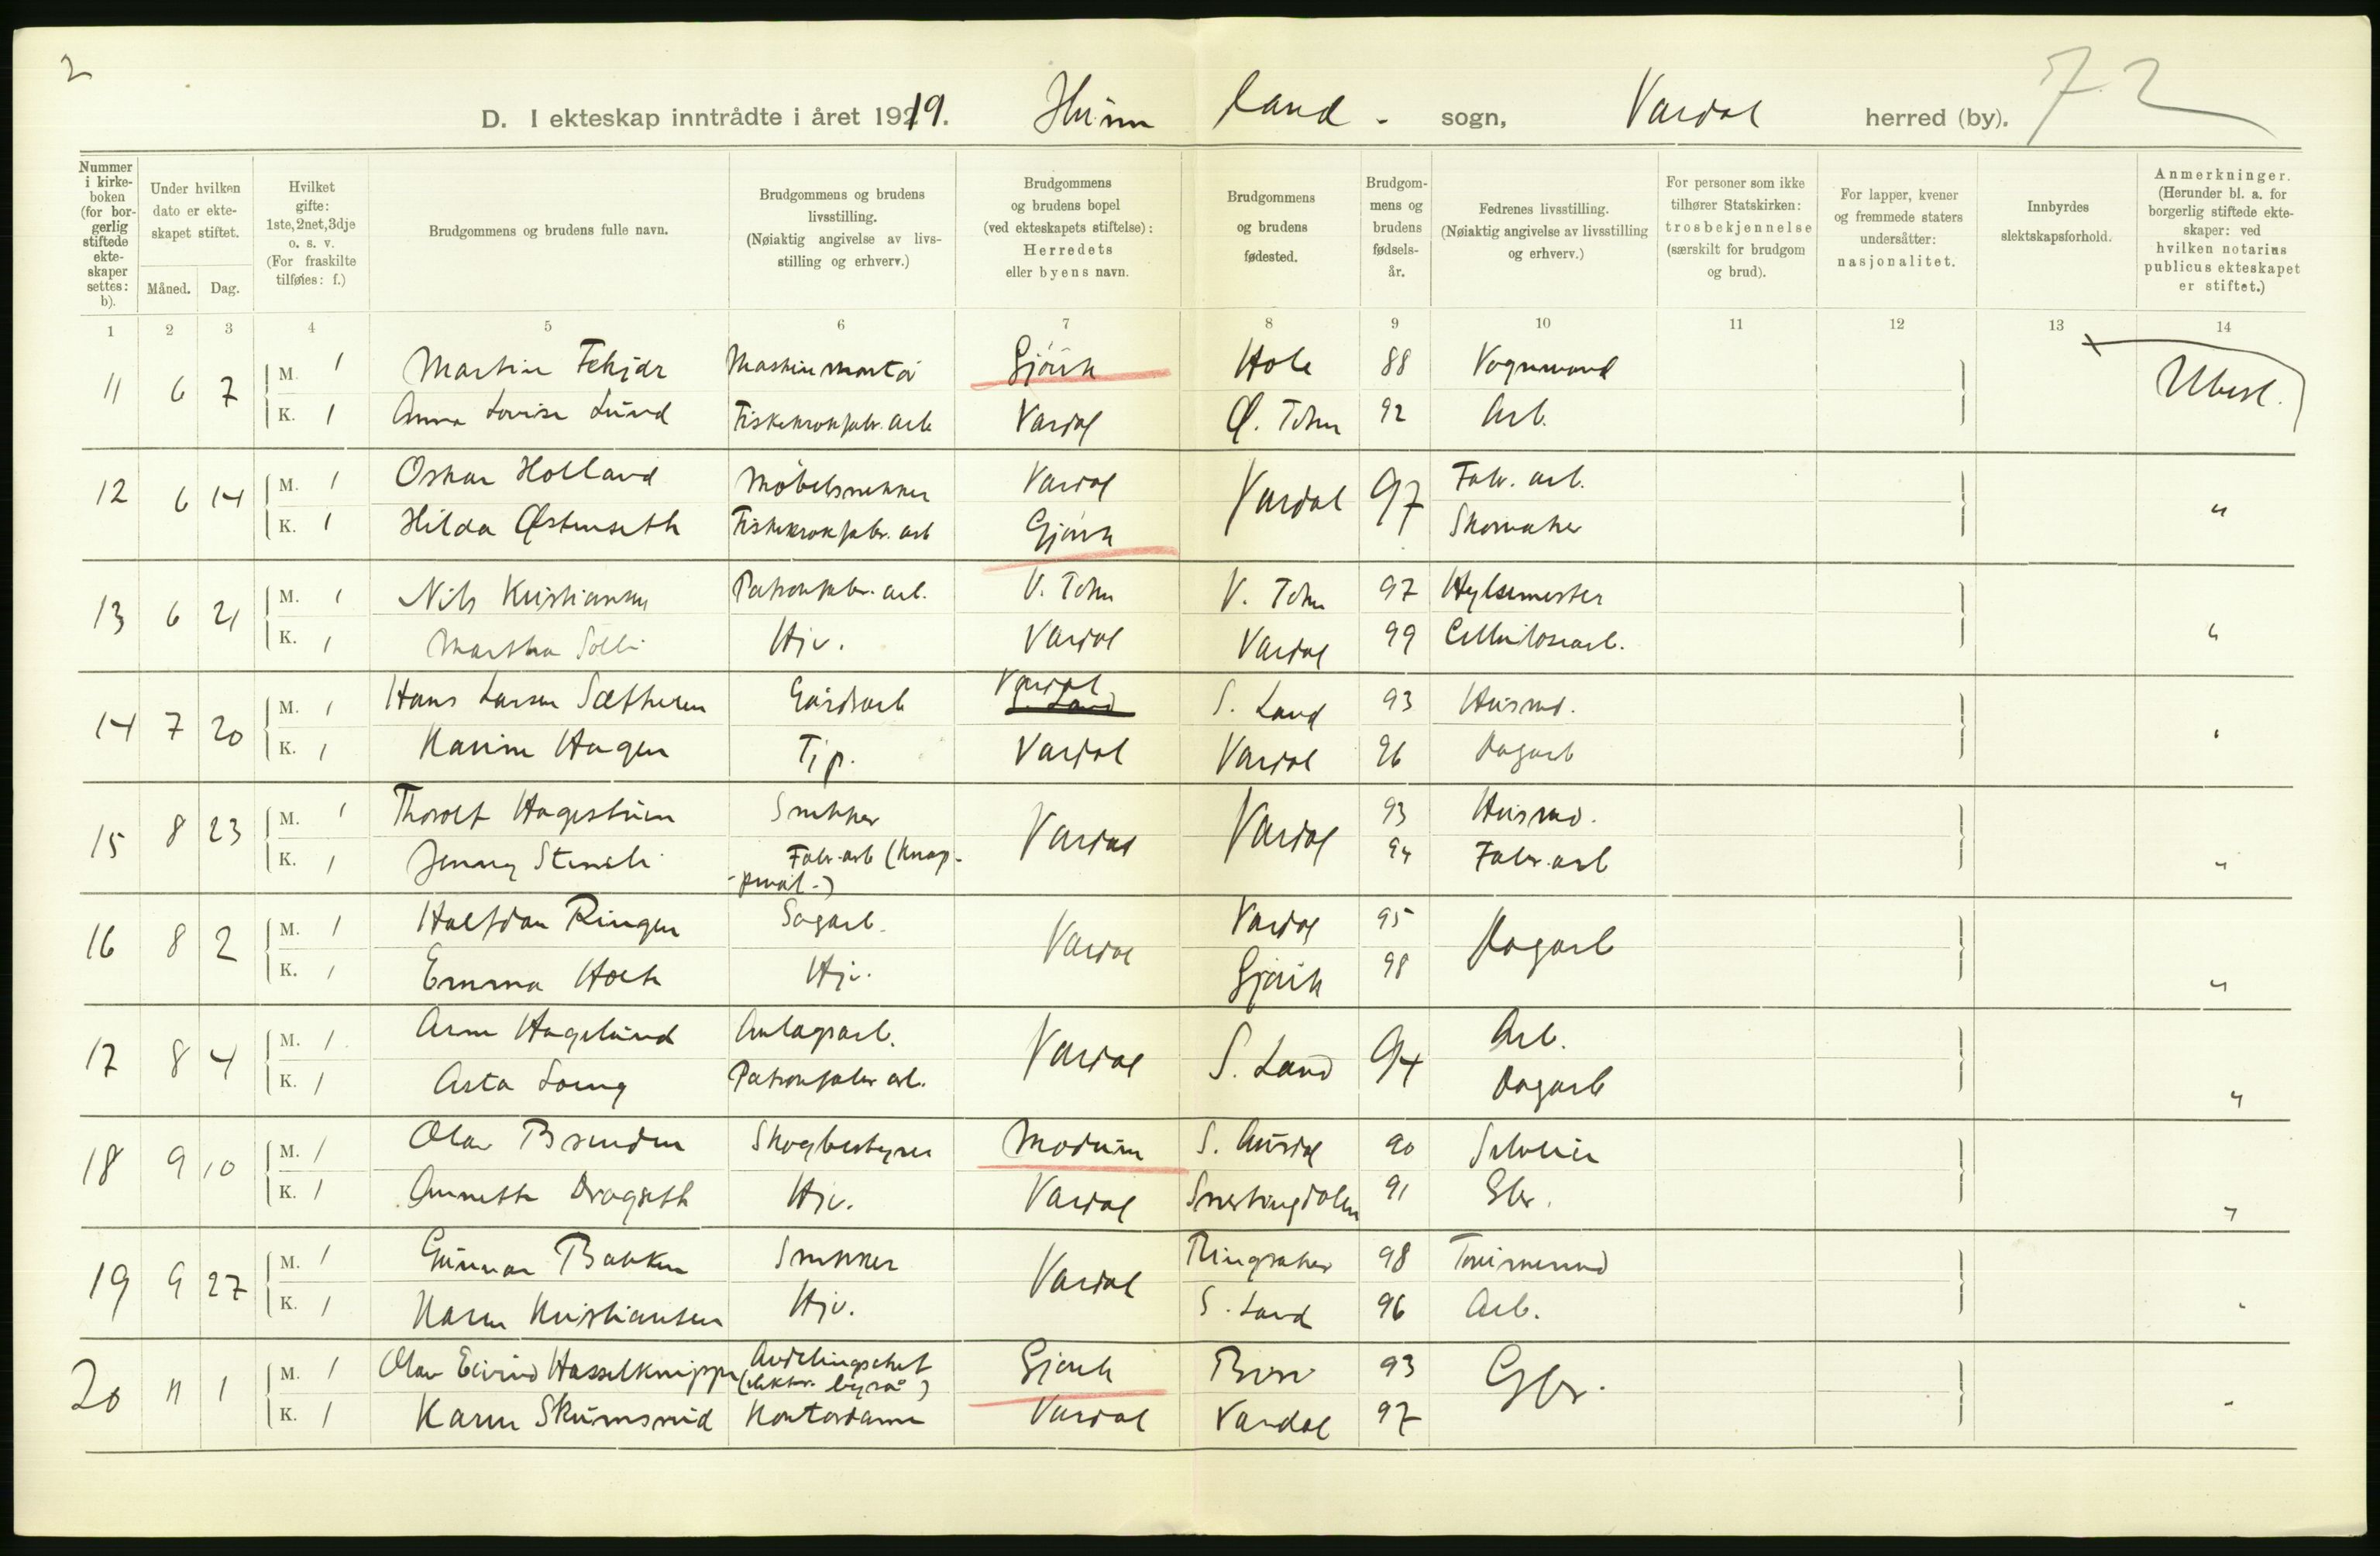 2
72
D. I ekteskap inntrådte i året 1919. Hunn land - sogn, Vardal herred (by).
Nummer i kirke-boken (for bor-gerlig stiftede ekte-skaper settes: b).
Under hvilken dato er ekte-skapet stiftet.
Måned. Dag.
Hvilket gifte: 1ste, 2net, 3dje o. s. v. (For fraskilte tilføies: f.)
Brudgommens og brudens fulle navn.
Brudgommens og brudens livsstilling. (Nøiaktig angivelse av livs-stilling og erhverv.)
Brudgommens og brudens bopel (ved ekteskapets stiftelse): Herredets eller byens navn.
Brudgommens og brudens fødested.
Brudgom-mens og brudens fødsels-år.
Fedrenes livsstilling. (Nøiaktig angivelse av livsstilling og erhverv.)
For personer som ikke tilhører Statskirken: trosbekjennelse (særskilt for brudgom og brud).
For lapper, kvener og fremmede staters undersåtter: nasjonalitet.
Innbyrdes slektskapsforhold.
Anmerkninger. (Herunder bl. a. for borgerlig stiftede ekte-skaper: ved hvilken notarius publicus ekteskapet er stiftet.)
1 2 3 4 5 6 7 8 9 10 11 12 13 14
11 6 7 M. 1 Martin Fekjær Maskinmontør Gjøvik Hole 88 Vognmand Ubesl.
K. 1 Anna Lovise Lund Fiskekrokfabr. arb Vardal Ø. Toten 92 Arb.
12 6 14 M. 1 Oskar Holland Møbelsnekker Vardal Vardal 97 Fabr. arb. "
K. 1 Hilda Østenseth Fiskekrokfabr. arb Gjøvik Skomaker
13 6 21 M. 1 Nils Kristiansen Patronfabr. arb. V. Toten V. Toten 97 Hylsemester "
K. 1 Martha Solli Hjv. Vardal Vardal 99 Cellulosearb.
14 7 20 M. 1 Hans Larsen Sætheren Gårdsarb Vardal S. Land S. Land 93 Husmd. "
K. 1 Karine Hagen Tjp. Vardal Vardal 96 Dagarb
15 8 23 M. 1 Thorolf Hagestuen Snekker Vardal Vardal 93 Husmd. "
K. 1 Jenny Stensli Fabr. arb (Knap- 94 Fabr. arb
16 8 2 M. 1 Halfdan Ringen Sagarb. Vardal Vardal 95 Dagarb "
K. 1 Emma Holth Hjv. Gjøvik 98
17 8 4 M. 1 Arne Hagelund Anlægsarb. Vardal S. Land 94 Arb. "
K. 1 Asta Loeng Patronfabr. arb. Dagarb
18 9 10 M. 1 Olav Brenden Skogbestyrer Modum S. Aurdal 90 Selveier "
K. 1 Annette Dragseth Hjv. Vardal Snertingdalen 91 Gbr.
19 9 27 M. 1 Gunnar Bakken Snekker Vardal Ringsaker 98 "
K. 1 Karen Kristiansen Hjv. S. Land 96 Arb.
20 11 1 M. 1 Olav Eivind Hasselknippe Avdelingschef (elektr. byrå) Gjøvik Biri 93 Gbr. "
K. 1 Karen Skumsrud Kontordame Vardal Vardal 97